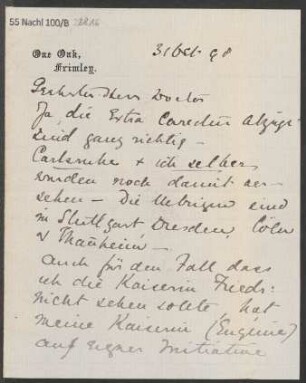 55 Nachl 100/B
One Oak,
Frimley.
31 Oct. 98
Geehrter Herr Doctor
Ja, die Extra Correctur Abzüge
sind ganz richtig –
Carlsruhe & ich selber
wurden noch damit ver-
sehen – Die Uebrigen sind
in Stuttgart Dresden, Cöln
& Manheim –
Auch für den Fall dass
ich die Kaiserin Friedr:
nicht sehen sollte, hat
meine Kaiserin (Eugénie)
auf eigner Initiative